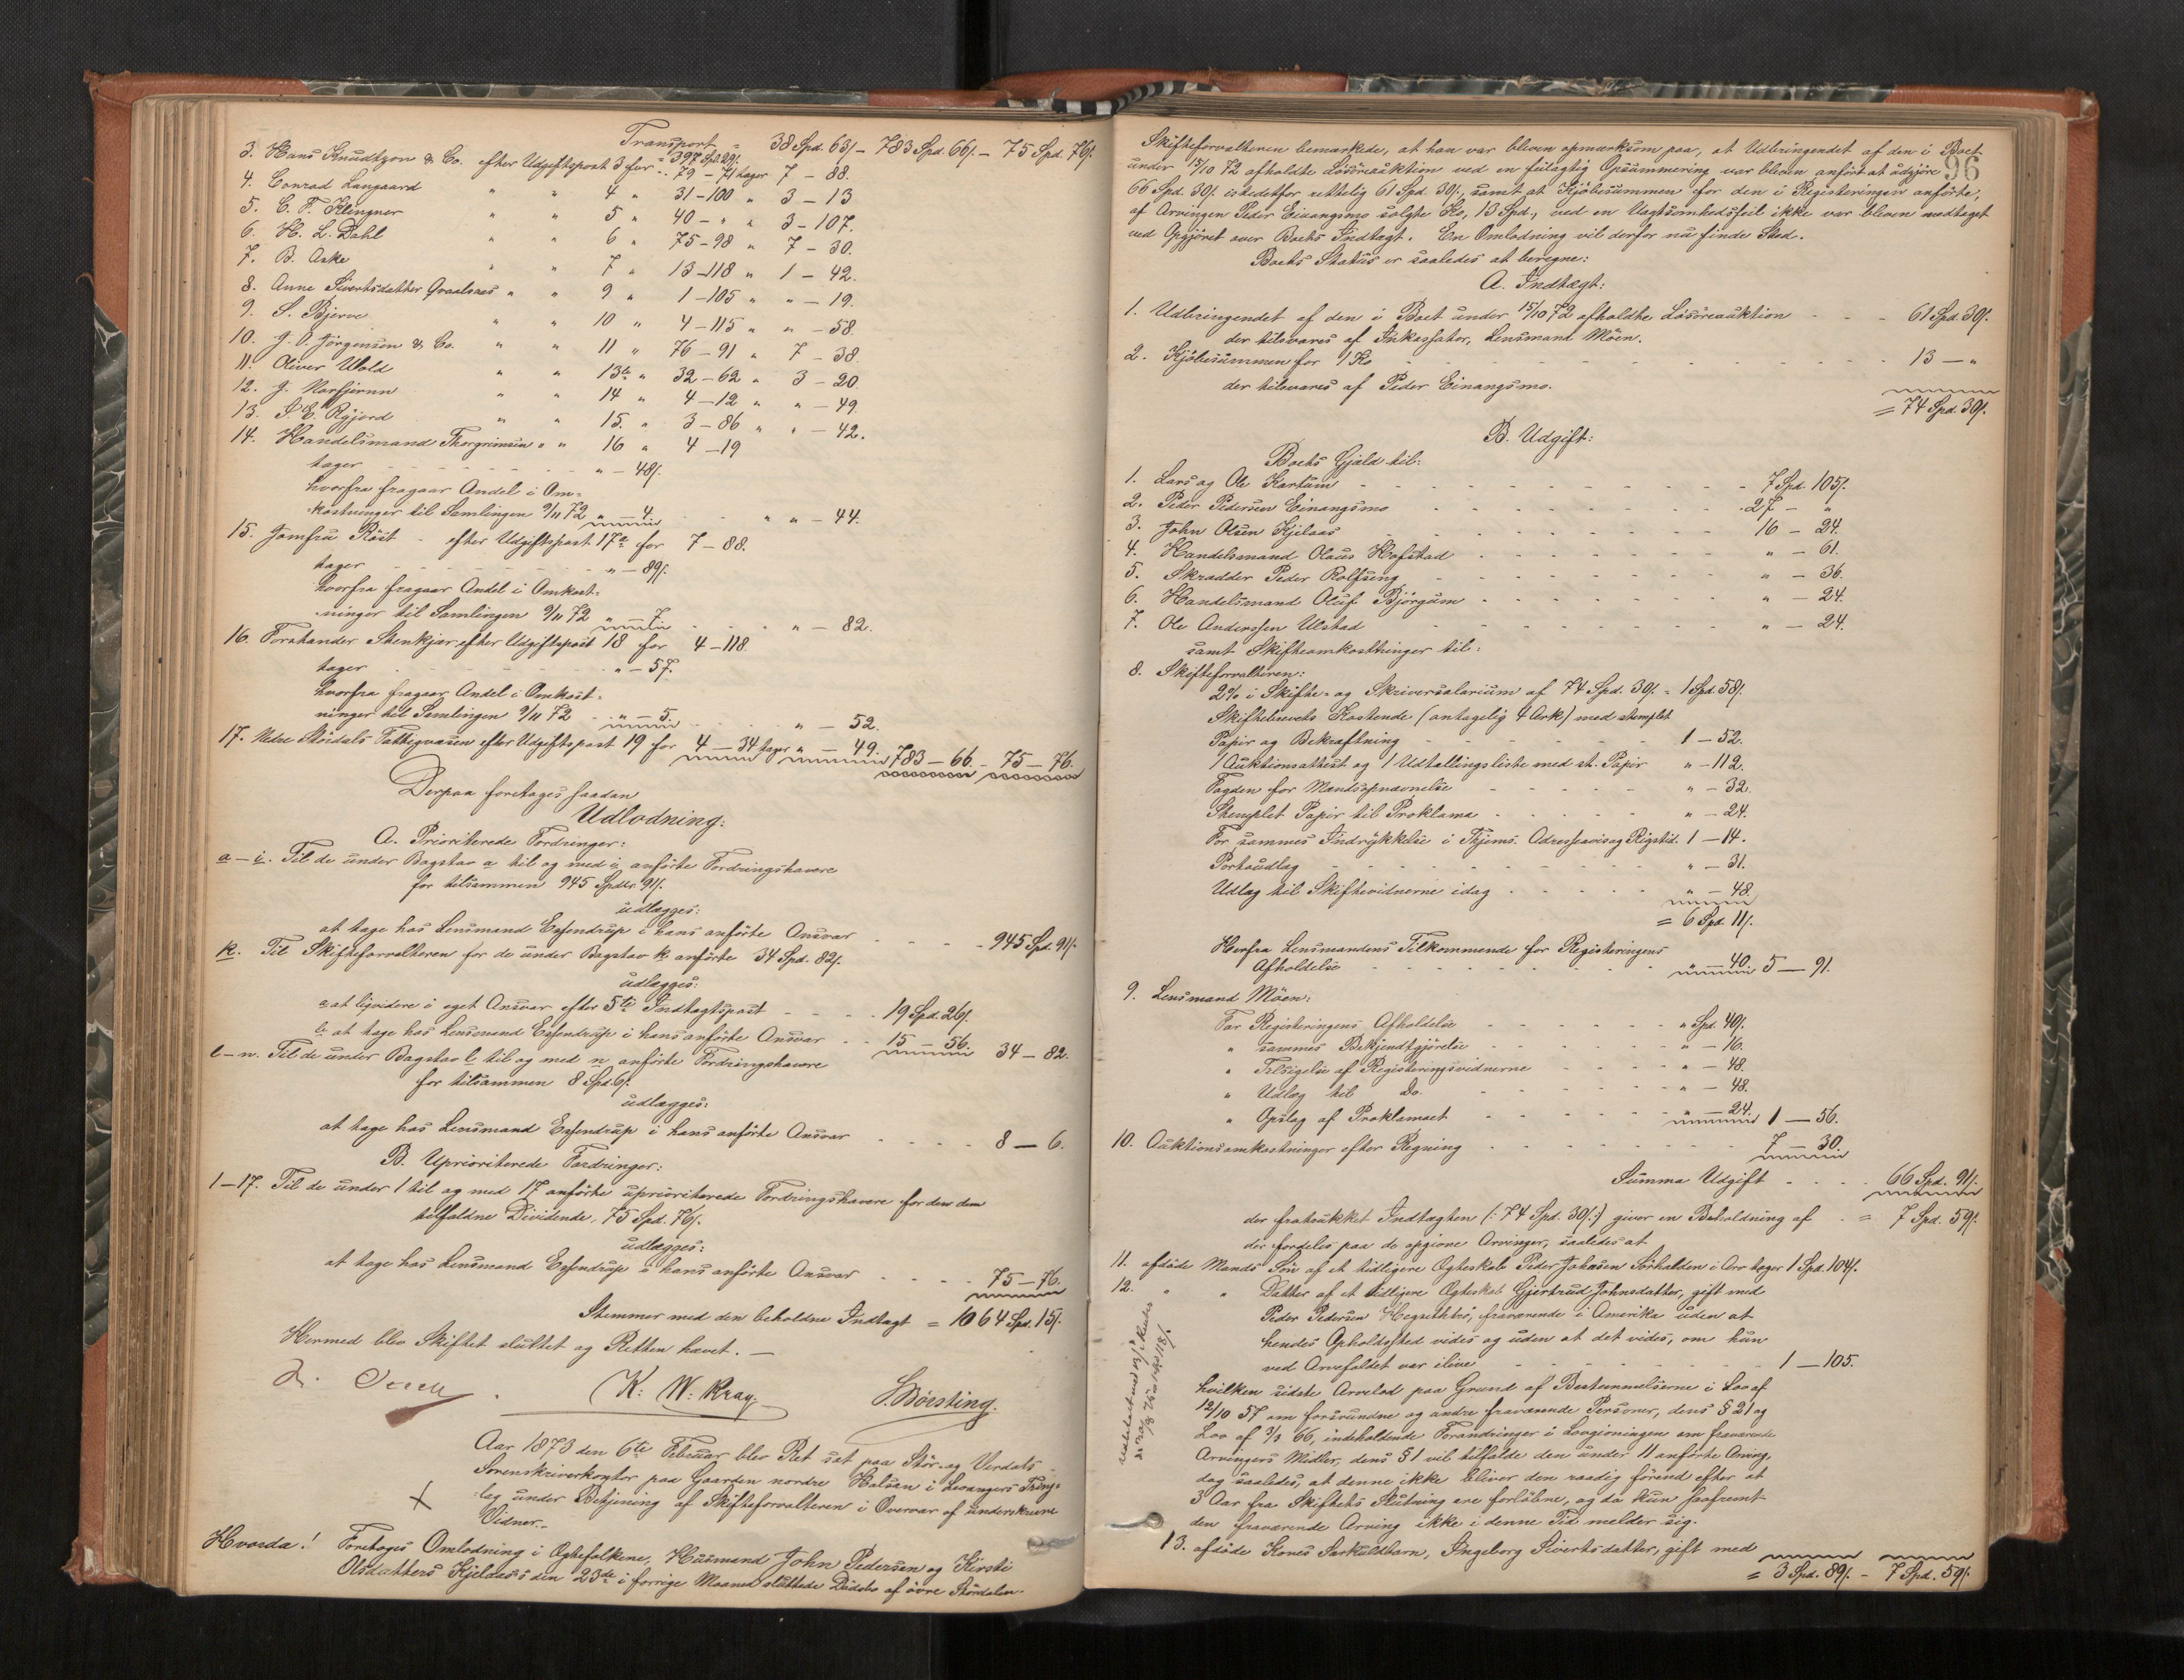 Transport = 38 Spd. 63/- 783 Spd. 66/- 75 Spd. 76/.
3. Hans Knudtzon & Co. efter Udgiftspost 3 for 397 Spd. 29/.
79 - 71 tager 7 - 88.
4. Conrad Langaard " " 4 " 31-100 " 3 - 13
5. C. F. Klingner " " 5 " 40 - " " 3 - 107.
6. H. L. Dahl " " 6 " 75-98 " 7 - 30.
7. B. Aske " " 7 " 13-118 " 1 - 42.
8. Anne Sivertsdatter Graalsaes " " 9 " 1-105 " " - 19.
9. S. Bjerve " " 10 " 4-115 " " - 58.
10. J. O. Jörgensen & Co. " " 11 " 76-91 " 7 - 38.
11. Oliver Wold " " 13de " 32-62 " 3 - 20.
12. J. Norfjerun " " 14 " 4-12 " " - 49.
13. S. E. Rygjord " " 15. " 3-86 " " - 42.
14. Handelsmand Thorgrimsen " " 16 " 4-19
tager " - 48/.
hvorfra fragaar Andel i Om=
kostninger til Samlingen 9/11 72 " - 4. " " - 44.
15. Jomfru Röst - efter Udgiftspost 17a for 7 - 88.
tager " - 89/.
hvorfra fragaar Andel i Omkost=
ninger til Samlingen 9/11 72 " - 7. " - 82.
16. Forstander Stenkjar efter Udgiftspost 18 for 4-118.
tager " - 57.
hvorfra fragaar Andel i Omkost=
ninger til Samlingen 9/11 72 " - 5. " - 52.
17. Nedre Stördals Fattigvæsen efter Udgiftspost 19 for 4 - 34 tager " - 49. 783 - 66. - 75 - 76.
Derpaa foretages saadan
Udlodning:
A. Prioriterede Fordringer:
a - i. Til de under Bogstav a til og med i anförte Fordringshavere
for tilsammen 945 Spdlr. 91/.
udlægges:
at tage hos Lensmand Essendrup i hans anförte Ansvar - 945 Spd. 91/.
k. Til Skifteforvalteren for de under Bogstav k anförte 34 Spd. 82/.
udlægges:
a at liqvidere i eget Ansvar efter 5te Indtægtspost 19 Spd. 26/.
b at tage hos Lensmand Essendrup i hans anförte Ansvar 15 - 56. 34 - 82.
l-n. Til de under Bogstav l til og med n anförte Fordringshavere
for tilsammen 8 Spd. 6/.
udlægges:
at tage hos Lensmand Essendrup i hans anförte Ansvar 8 - 6.
B. Uprioriterede Fordringer:
1-17. Til de under 1 til og med 17 anförte uprioriterede Fordringshavere for den dem
tilfaldne Dividende, 75 Spd. 76/.
udlægges:
at tage hos Lensmand Essendrup i hans anförte Ansvar 75 - 76.
Stemmer med den beholdne Indtægt = 1064 Spd. 15/.
Hermed blev Skiftet sluttet og Retten hævet. -
K. W. Kray. S. Börsting.
Aar 1873 den 6te Februar blev Ret sat paa Stör- og Værdals
Sorenskriverkontor paa Gaarden nordre Halsan i Levangers Thing=
lag under Betjening af Skifteforvalteren i Overvær af underskrevne
Vidner. -
Hvorda! Foretages Omlodning i Ægtefolkene, Husmand John Pedersen og Kirsti
Olsdatters Kjelaas's den 23de i forrige Maaned sluttede Dödsbo af övre Stördalen.
96
Skifteforvalteren bemærkede, at han var bleven opmærksom paa, at Udbringendet af den i Boet
under 15/10 72 afholdte Lösöreauktion ved en feilagtig Opsummering var bleven anfört at udgjöre
66 Spd. 30/. istedetfor rettelig 61 Spd. 30/., samt at Kjöbesummen for den i Registeringen anförte,
af Arvingen Peder Einangsmo solgte Ko, 13 Spd., ved en Uagtsomhedsfeil ikke var bleven medtaget
ved Opgjöret over Boets Indtægt. En Omlodning vil derfor nu finde Sted.
Boets Status er saaledes at beregne:
A. Indtægt:
1. Udbringendet af den i Boet under 15/10 72 afholdte Lösöreauktion - - - 61 Spd. 30/.
der tilsvares af Inkassator, Lensmand Möen.
2. Kjöbesummen for 1 Ko 13 - "
der tilsvares af Peder Einangsmo.
= 74 Spd. 30/.
B. Udgift:
Boets Gjæld til:
1. Lars og Ole Kartum 7 Spd. 105/.
2. Peder Pedersen Einangsmo 27 - "
3. John Olsen Kjelaas 16 - 24.
4. Handelsmand Olaus Hofstad " - 61.
5. Skrædder Peder Rolfseng " - 36.
6. Handelsmand Oluf Bjørgum " - 24.
7. Ole Anderssen Ulstad " - 24.
samt Skifteomkostninger til:
8. Skifteforvalteren:
2% i Skifte- og Skriversalarium af 74 Spd. 30/. = 1 Spd. 58/.
Skiftebrevets Kostende (antagelig 4 Ark) med stemplet
Papir og Bekræftning 1 - 52.
1 Auktionsattest og 1 Udtallingsliste med st. Papir " - 112.
Fogden for Mandsopnævnelse " - 32.
Stemplet Papir til Proklama " - 24.
For sammes Indrykkelse i Thjems. Adresseavis og Rigstid. 1 - 14.
Portoudlæg " - 31.
Udlæg til Skiftevidnerne idag " - 48
= 6 Spd. 11/.
Herfra Lensmandens Tilkommende for Registeringens
Afholdelse " - 40. 5 - 91.
9. Lensmand Möen:
For Registeringens Afholdelse " Spd. 40/.
" sammes Bekjendtgjörelse " - 16.
" Tilsigelse af Registeringsvidnerne " - 48.
" Udlæg til Do. " - 48.
" Opslag af Proklamaet " - 24. 1 - 56.
10. Auktionsomkostninger efter Regning 7 - 30.
Summa Udgift - - - - 66 Spd. 91/.
der fratrukket Indtægten (: 74 Spd. 30/:) giver en Beholdning af = 7 Spd. 59/.
der fordeles paa de opgivne Arvinger, saaledes at
11. afdöde Mands Sön af et tidligere Ægteskab Peder Johnsen Sörhalden i Arv tager 1 Spd. 104/.
12. " " Datter af et tidligere Ægteskab Gjertrud Johnsdatter, gift med
Peder Pedersen Hegsethtrö, fraværende i Amerika uden at
hendes Opholdssted vides og uden at det vides, om hun
ved Arvefaldet var ilive 1 - 105.
hvilken sidste Arvelod paa Grund af Bestemmelserne i Lov af
12/10 57 om forsvundne og andre fraværende Personer, dens § 21 og
Lov af 3/3 66, indeholdende Forandringer i Lovgivningen om fraværende
Arvingers Midler, dens § 1 vil tilfalde den under 11 anförte Arving,
dog saaledes, at denne ikke bliver den raadig förend efter at
3 Aar fra Skiftets Slutning ere forlöbne, og da kun saafremt
den fraværende Arving ikke i denne Tid melder sig.
13. afdöde Kones Særkuldbarn, Ingeborg Sivertsdatter, gift med
= 3 Spd. 89/. - 7 Spd. 59/.